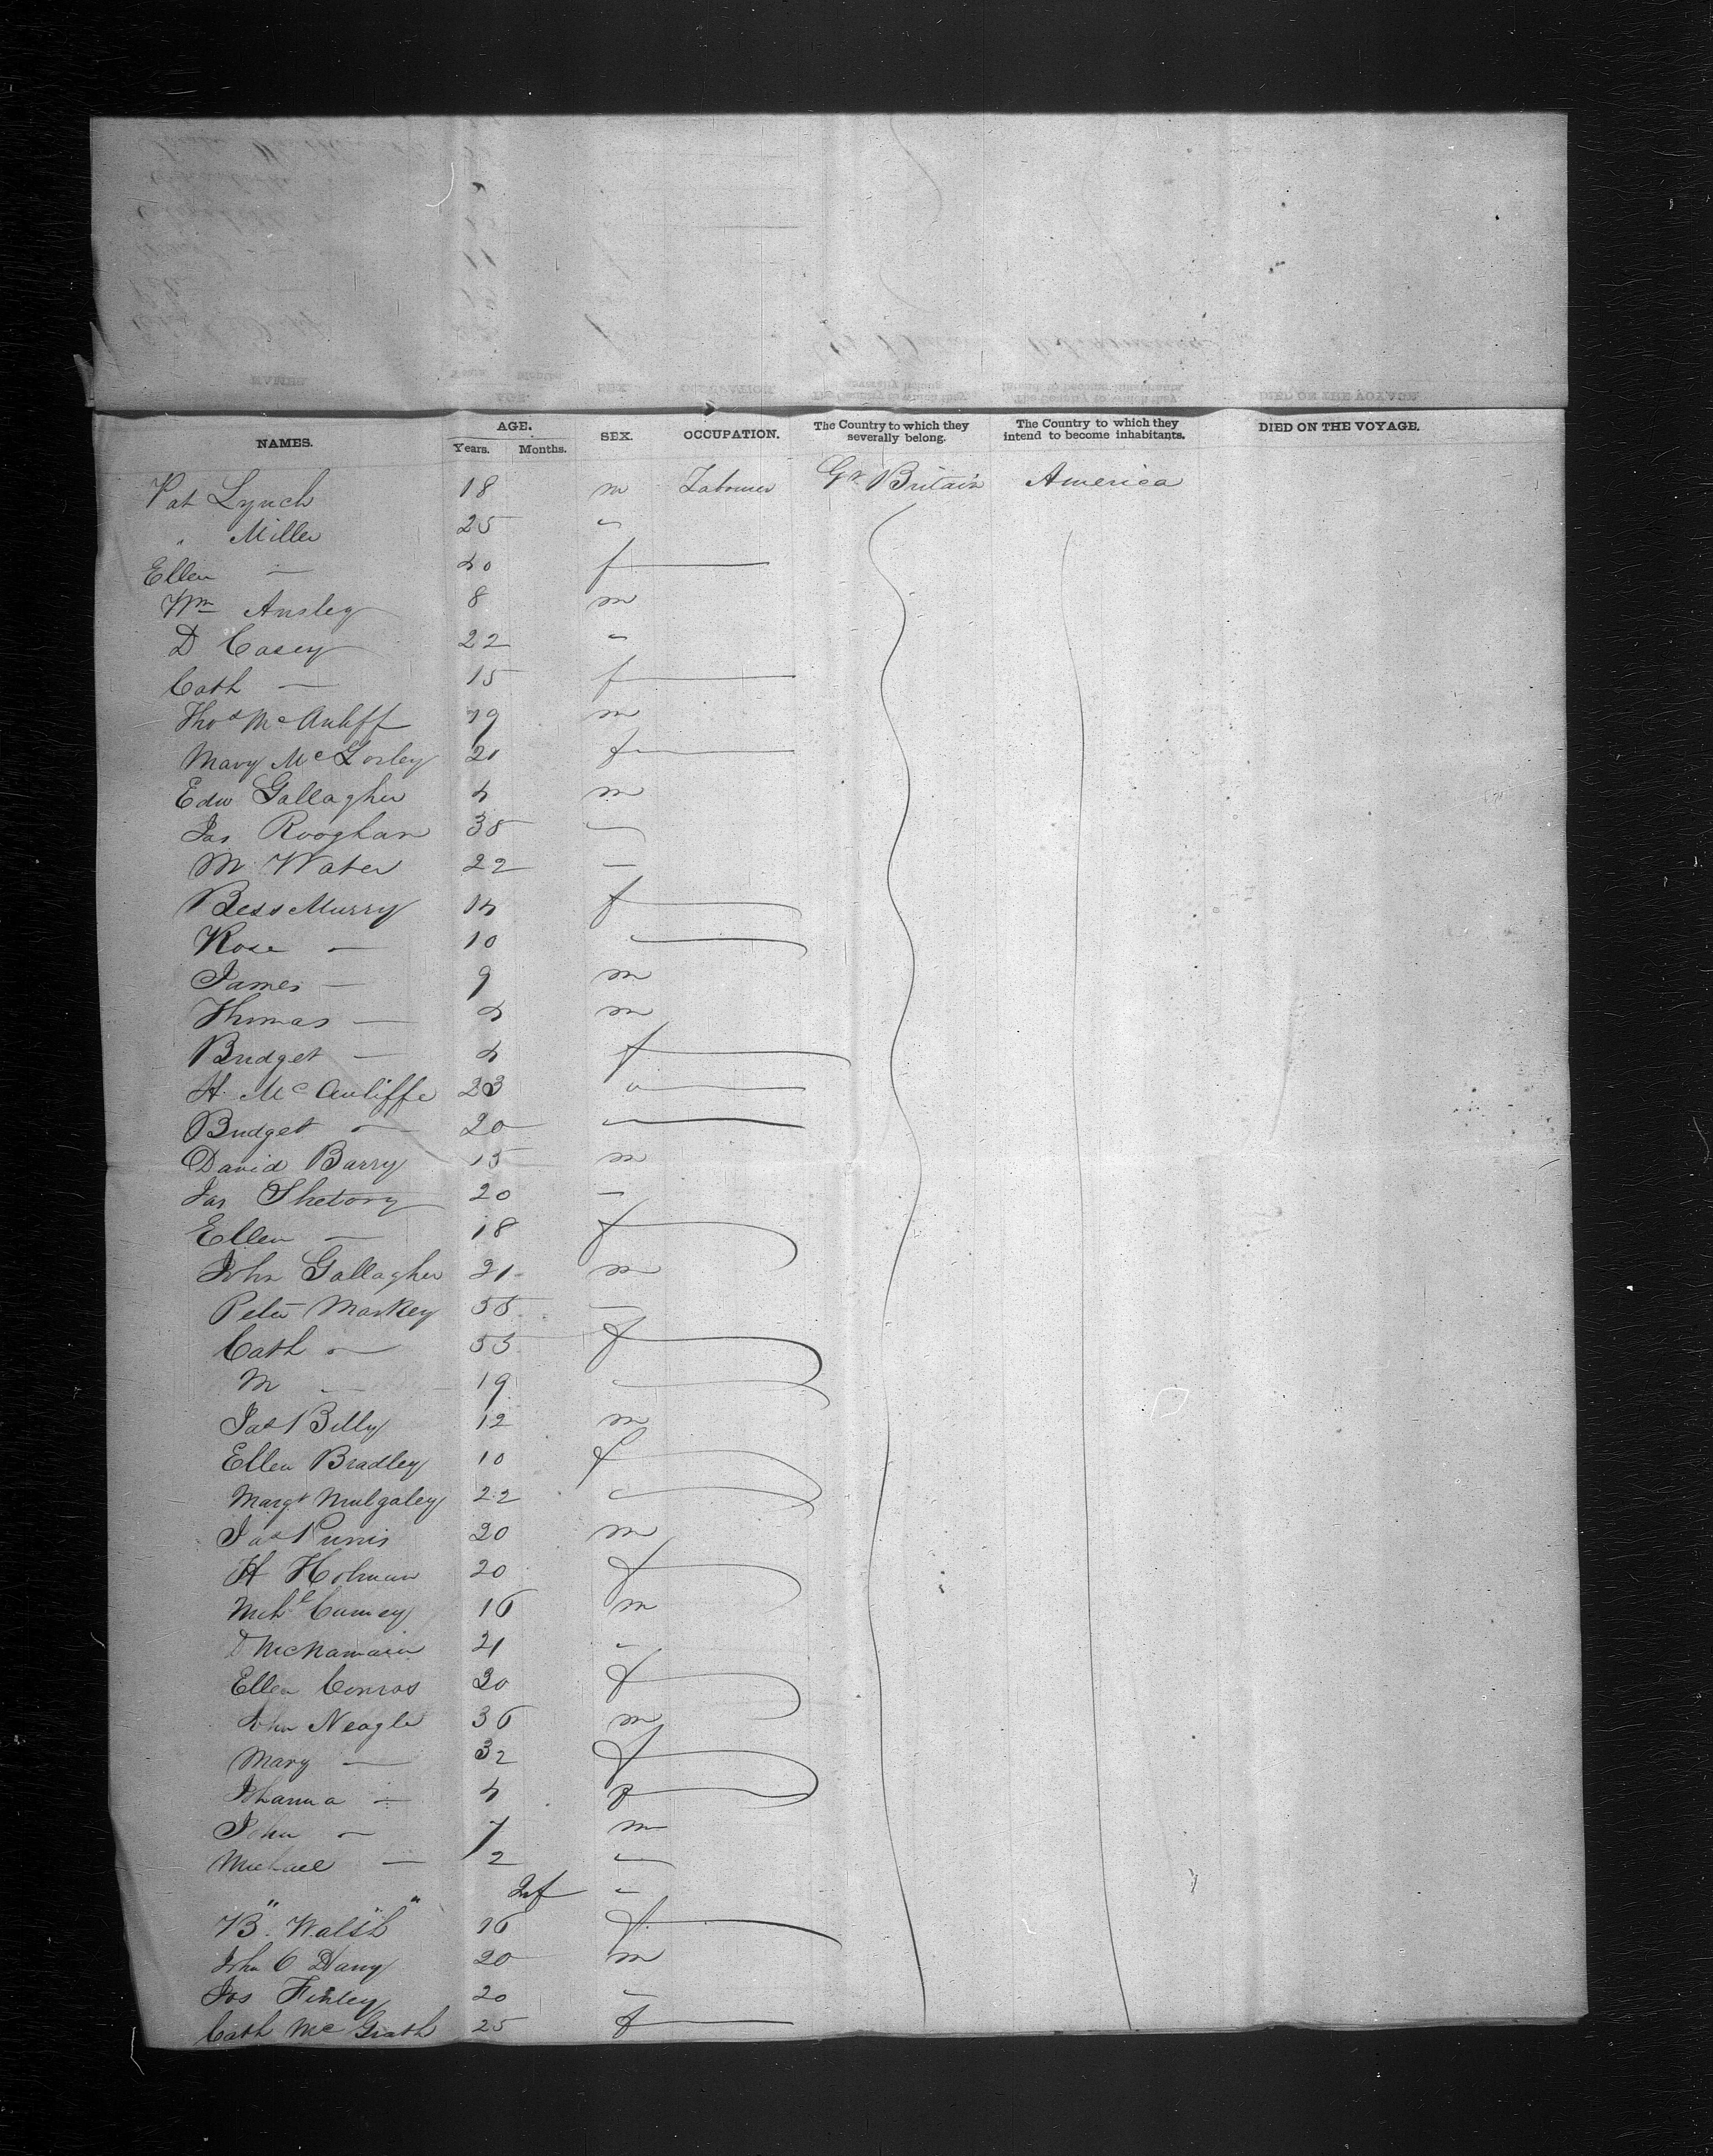 NAMES. AGE. Years. Months. SEX. OCCUPATION. The Country to which they severally belong. The Country to which they intend to become inhabitants. DIED ON THE VOYAGE.
Pat Lynch 18 m Labourer Gt Britain America
" Miller 25 "
Ellen — 40 f
Wm Ansley 8 m
D Casey 22 "
Cath — 15 f
Thos McAuliff 19 m
Mary McGorley 21 f
Edw Gallagher 4 m
Jas Rooghan 35 "
M Water 22 —
Bess Murry 14 f
Rose — 10 "
James — 9 m
Thomas — 4 m
Bridget — 4 f
H. McAuliffe 23 "
Bridget " 20 "
David Barry 15 m
Jas Shetory 20 —
Ellen — 18 f
John Gallagher 21 m
Peter Markey 55 —
Cath " 55 f
M — 19 "
Jas Billy 12 m
Ellen Bradley 10 f
Margt Mulgaley 22 "
Jas 20 m
H Holman 20 f
Michl 16 m
D McNamara 21 "
Ellen Conros 30 f
John Neagle 36 m
Mary — 32 f
Johanna — 4 f
John " 7 m
Michael — 2 "
" " " Inf "
B. Walsh 16 f
John O 20 m
Jos Finley 20 "
Cath McGrath 25 f